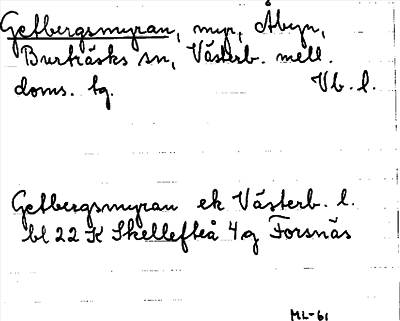 Getbergsmyran, myr, Åbyn,
Burträsks sn, Västerb. mell.
doms. tg. Vb. l.
Getbergsmyran ek Västerb. l.
bl 22 K Skellefteå 4g Forsnäs
ML-61